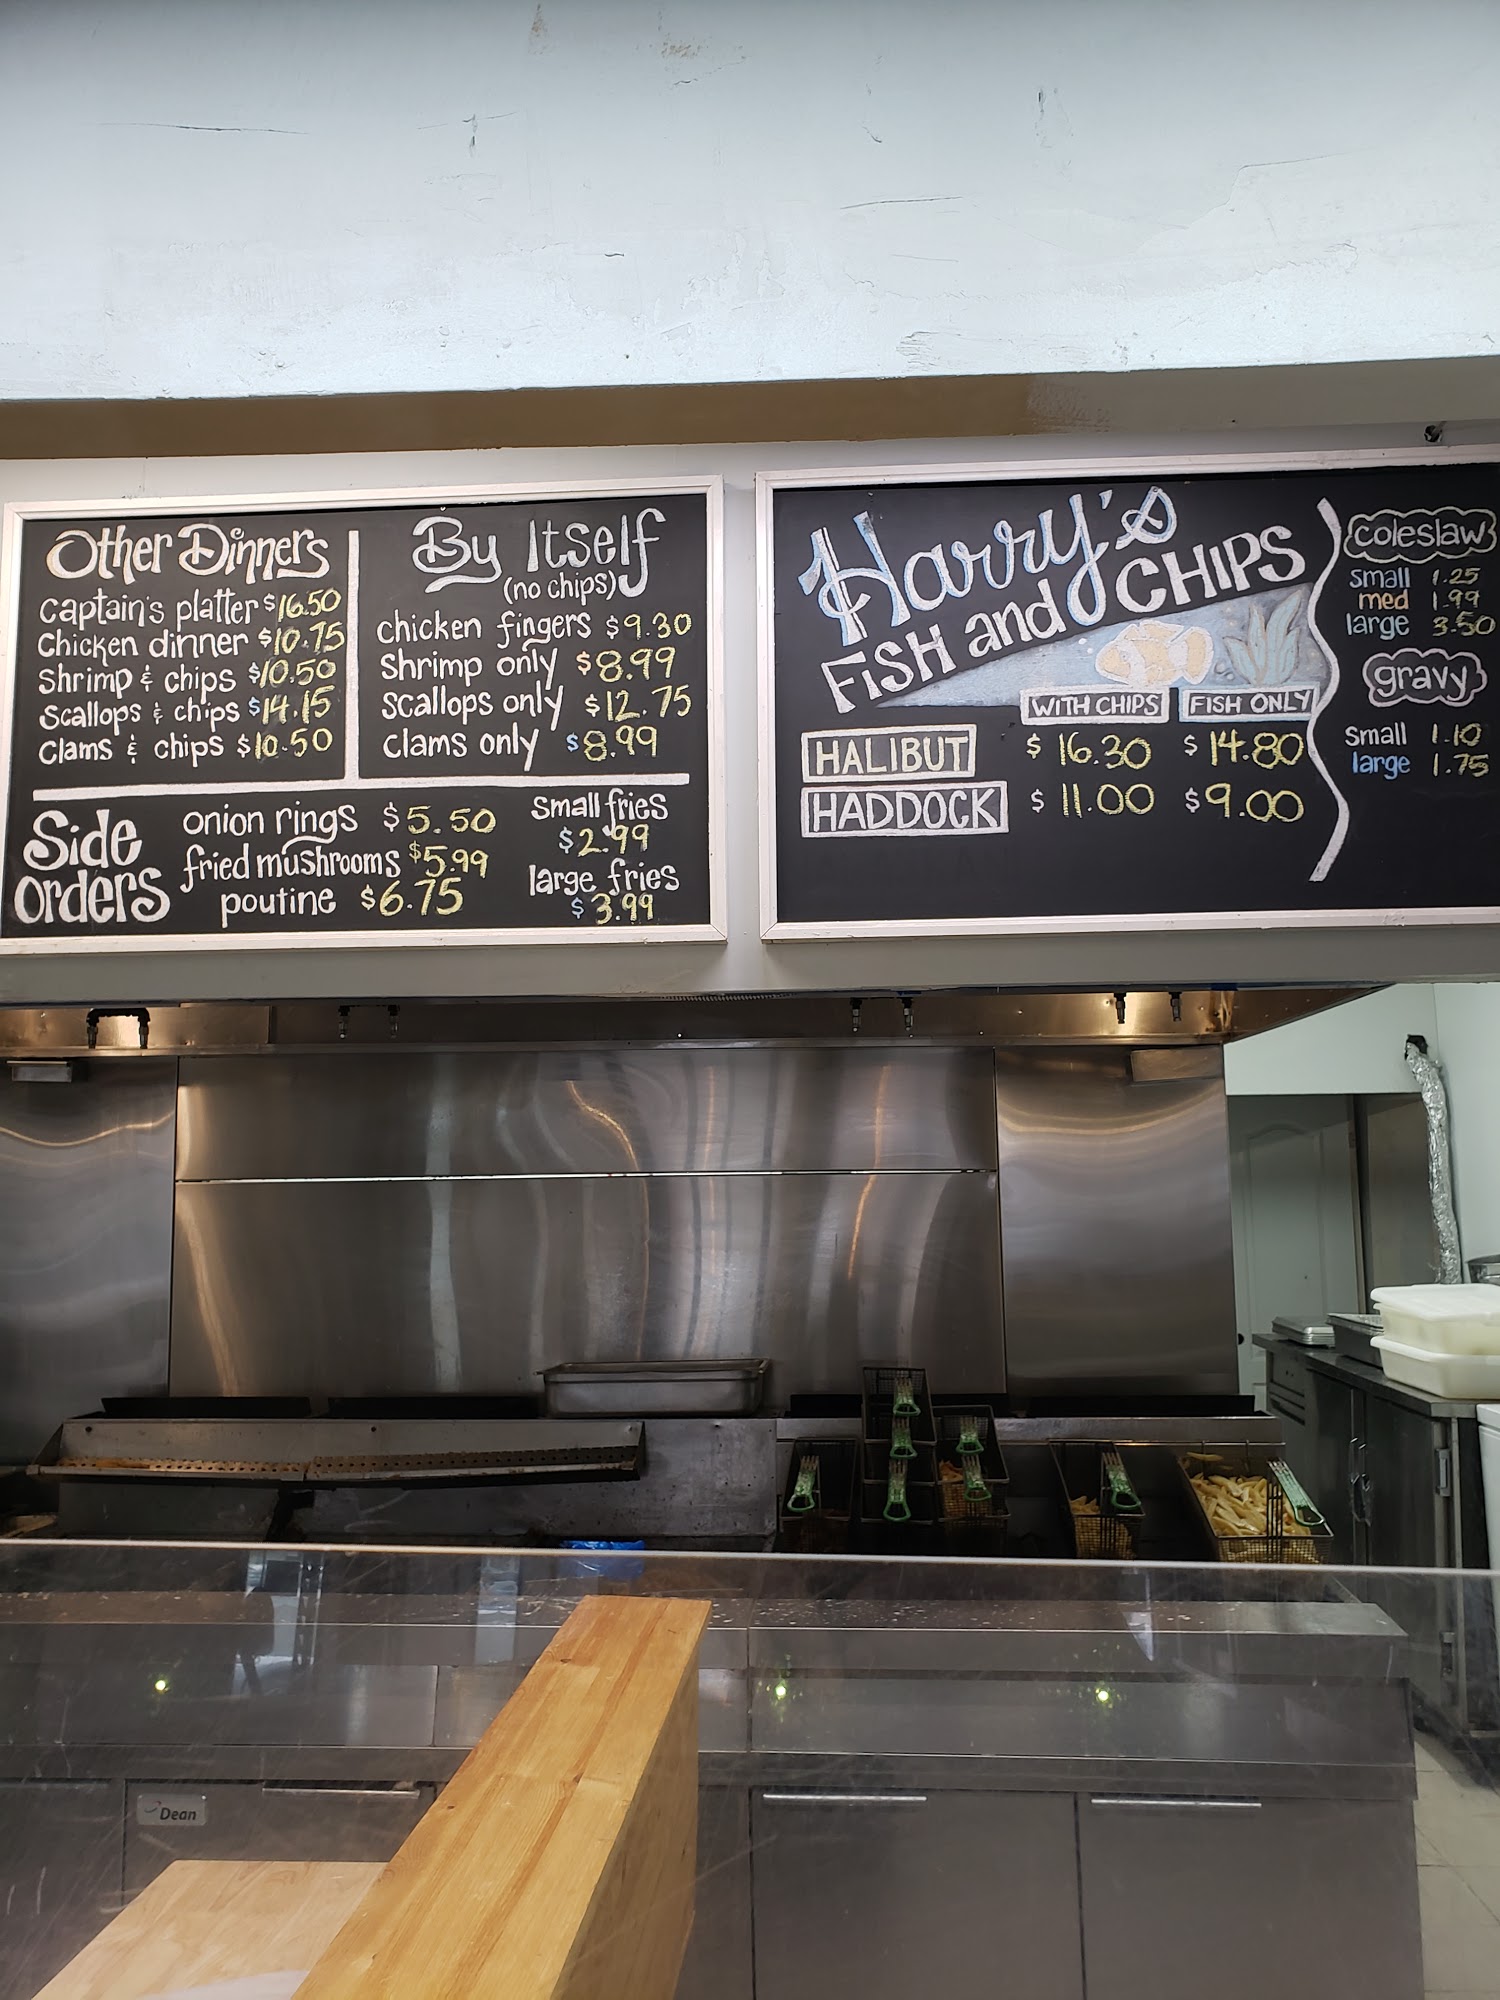 Other Dinners
captain's platter $16.50
chicken dinner $10.75
shrimp & chips $10.50
scallops & chips $14.15
clams & chips $10.50
By Itself
(no chips)
chicken fingers $9.30
shrimp only $8.99
scallops only $12.75
clams only $8.99
Side Orders
onion rings $5.50
fried mushrooms $5.99
poutine $6.75
small fries
$2.99
large fries
$3.99
Harry's
FISH and CHIPS
WITH CHIPS FISH ONLY
HALIBUT $16.30 $14.80
HADDOCK $11.00 $9.00
coleslaw
small 1.25
med 1.99
large 3.50
gravy
small 1.10
large 1.75
Dean